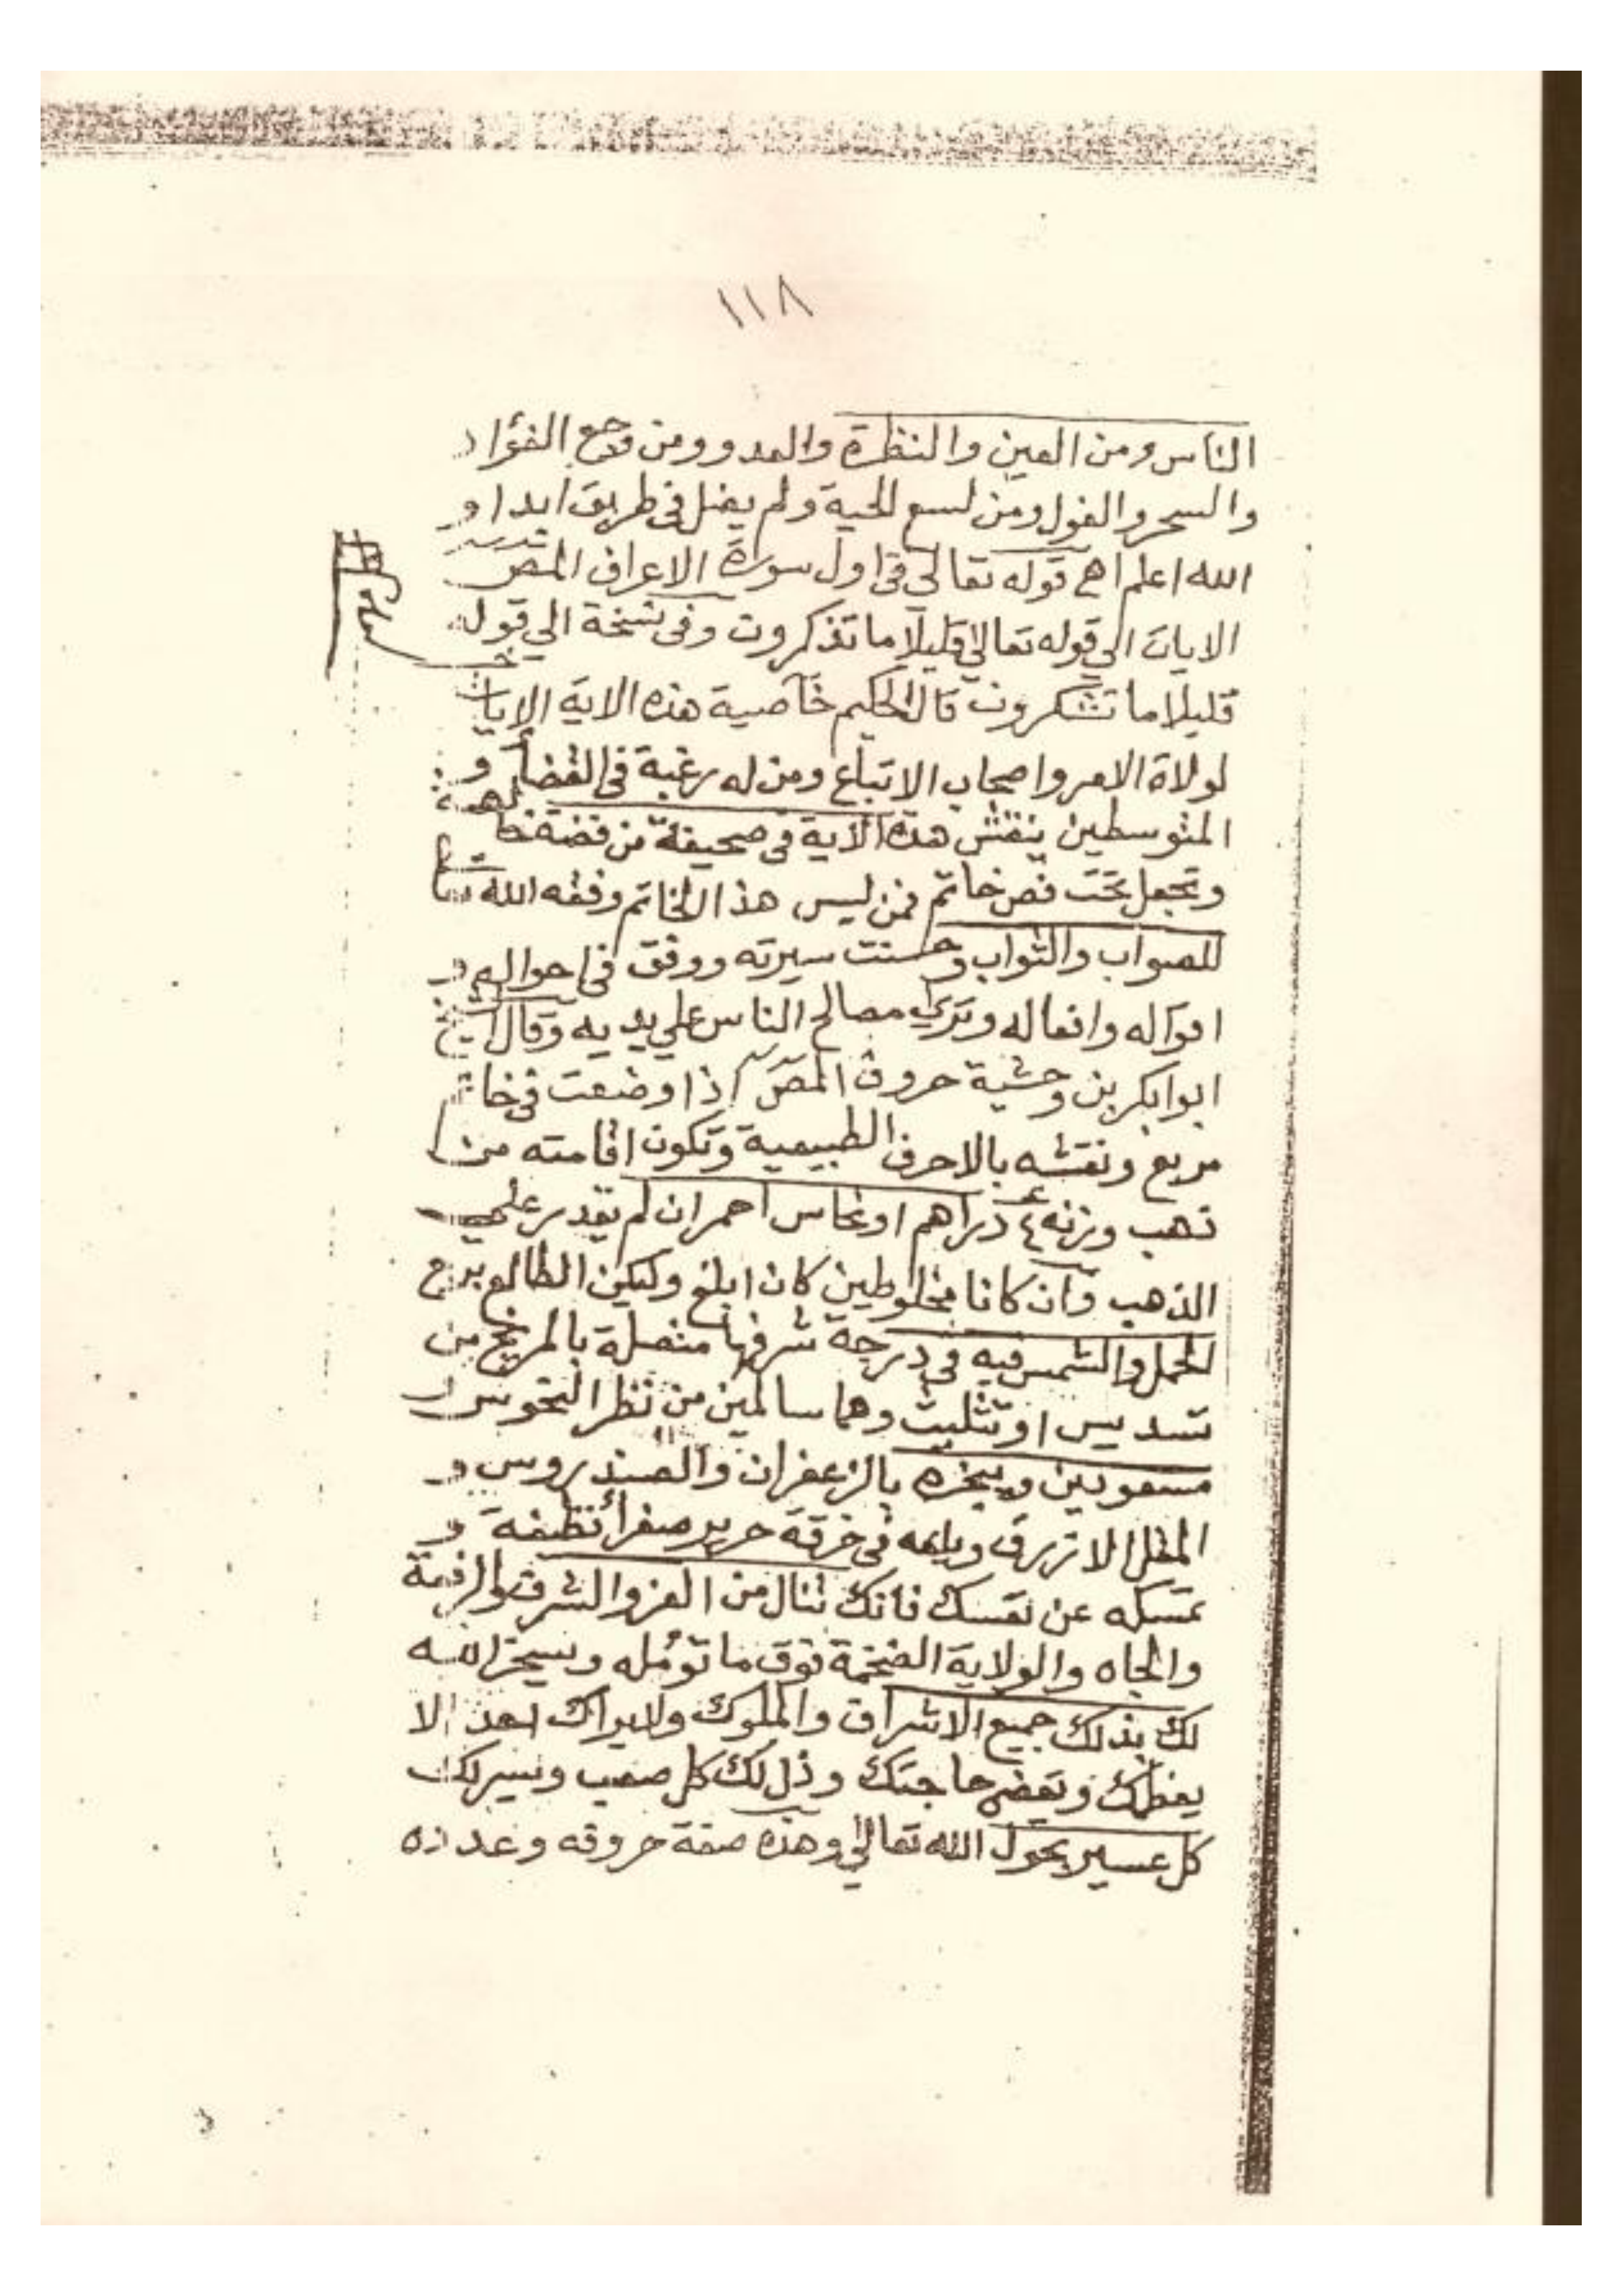 ١١٨
الناس ومن العين والنظرة والعدو ومن وجع الفؤاد
والسحر والغول ومن لسع الحية ولم يضل في طريق ابدا و
الله اعلم اهـ قوله تعالى في اول سورة الاعراف المص
الايات الي قوله تعالي قليلا ما تذكرون وفي نسخة الي قوله
قليلا ما تشكرون قال الحكيم خاصية هذه الاية الايات
لولاة الامر واصحاب الاتباع ومن له رغبة في القضأ و
المتوسطين ينقش هذه الاية في صحيفة من فضة
وتجعل تحت فص خاتم فمن لبس هذا الخاتم وفقه الله تعا
للصواب والثواب وحسنت سيرته ووفق في احواله و
اقواله وافعاله وتري مصالح الناس علي يديه وقال الشيخ
ابوابكر بن وحشية حروف المص اذا وضعت في خاتم
مربع ونقشه بالاحرف الطبيعية وتكون اقامته من
ذهب وزنه ٤ دراهم او نحاس احمر ان لم يقدر علي
الذهب وان كانا مخلوطين كان ابلغ وليكن الطالع برج
الحمل والشمس فيه في درجة شرفها متصلة بالمريخ من
تسديس او تثليث وهما سالمين من نظر النحوس
مسعودين ويبخره بالزعفران والصندروس و
المقل الازرق ويلفه في خرقة حرير صفرأ نظيفة و
تمسكه عن نفسك فانك تنال من العز والشرف والرفعة
والجاه والولاية الضخمة فوق ما تؤمله ويسخر الله
لك بذلك جميع الاشراف والملوك ولا يراك احد الا
يعظك ويقضي حاجتك وذل لك كل صعب ويسر لك
كل عسير بحول الله تعالي وهذه صفة حروفه وعدده